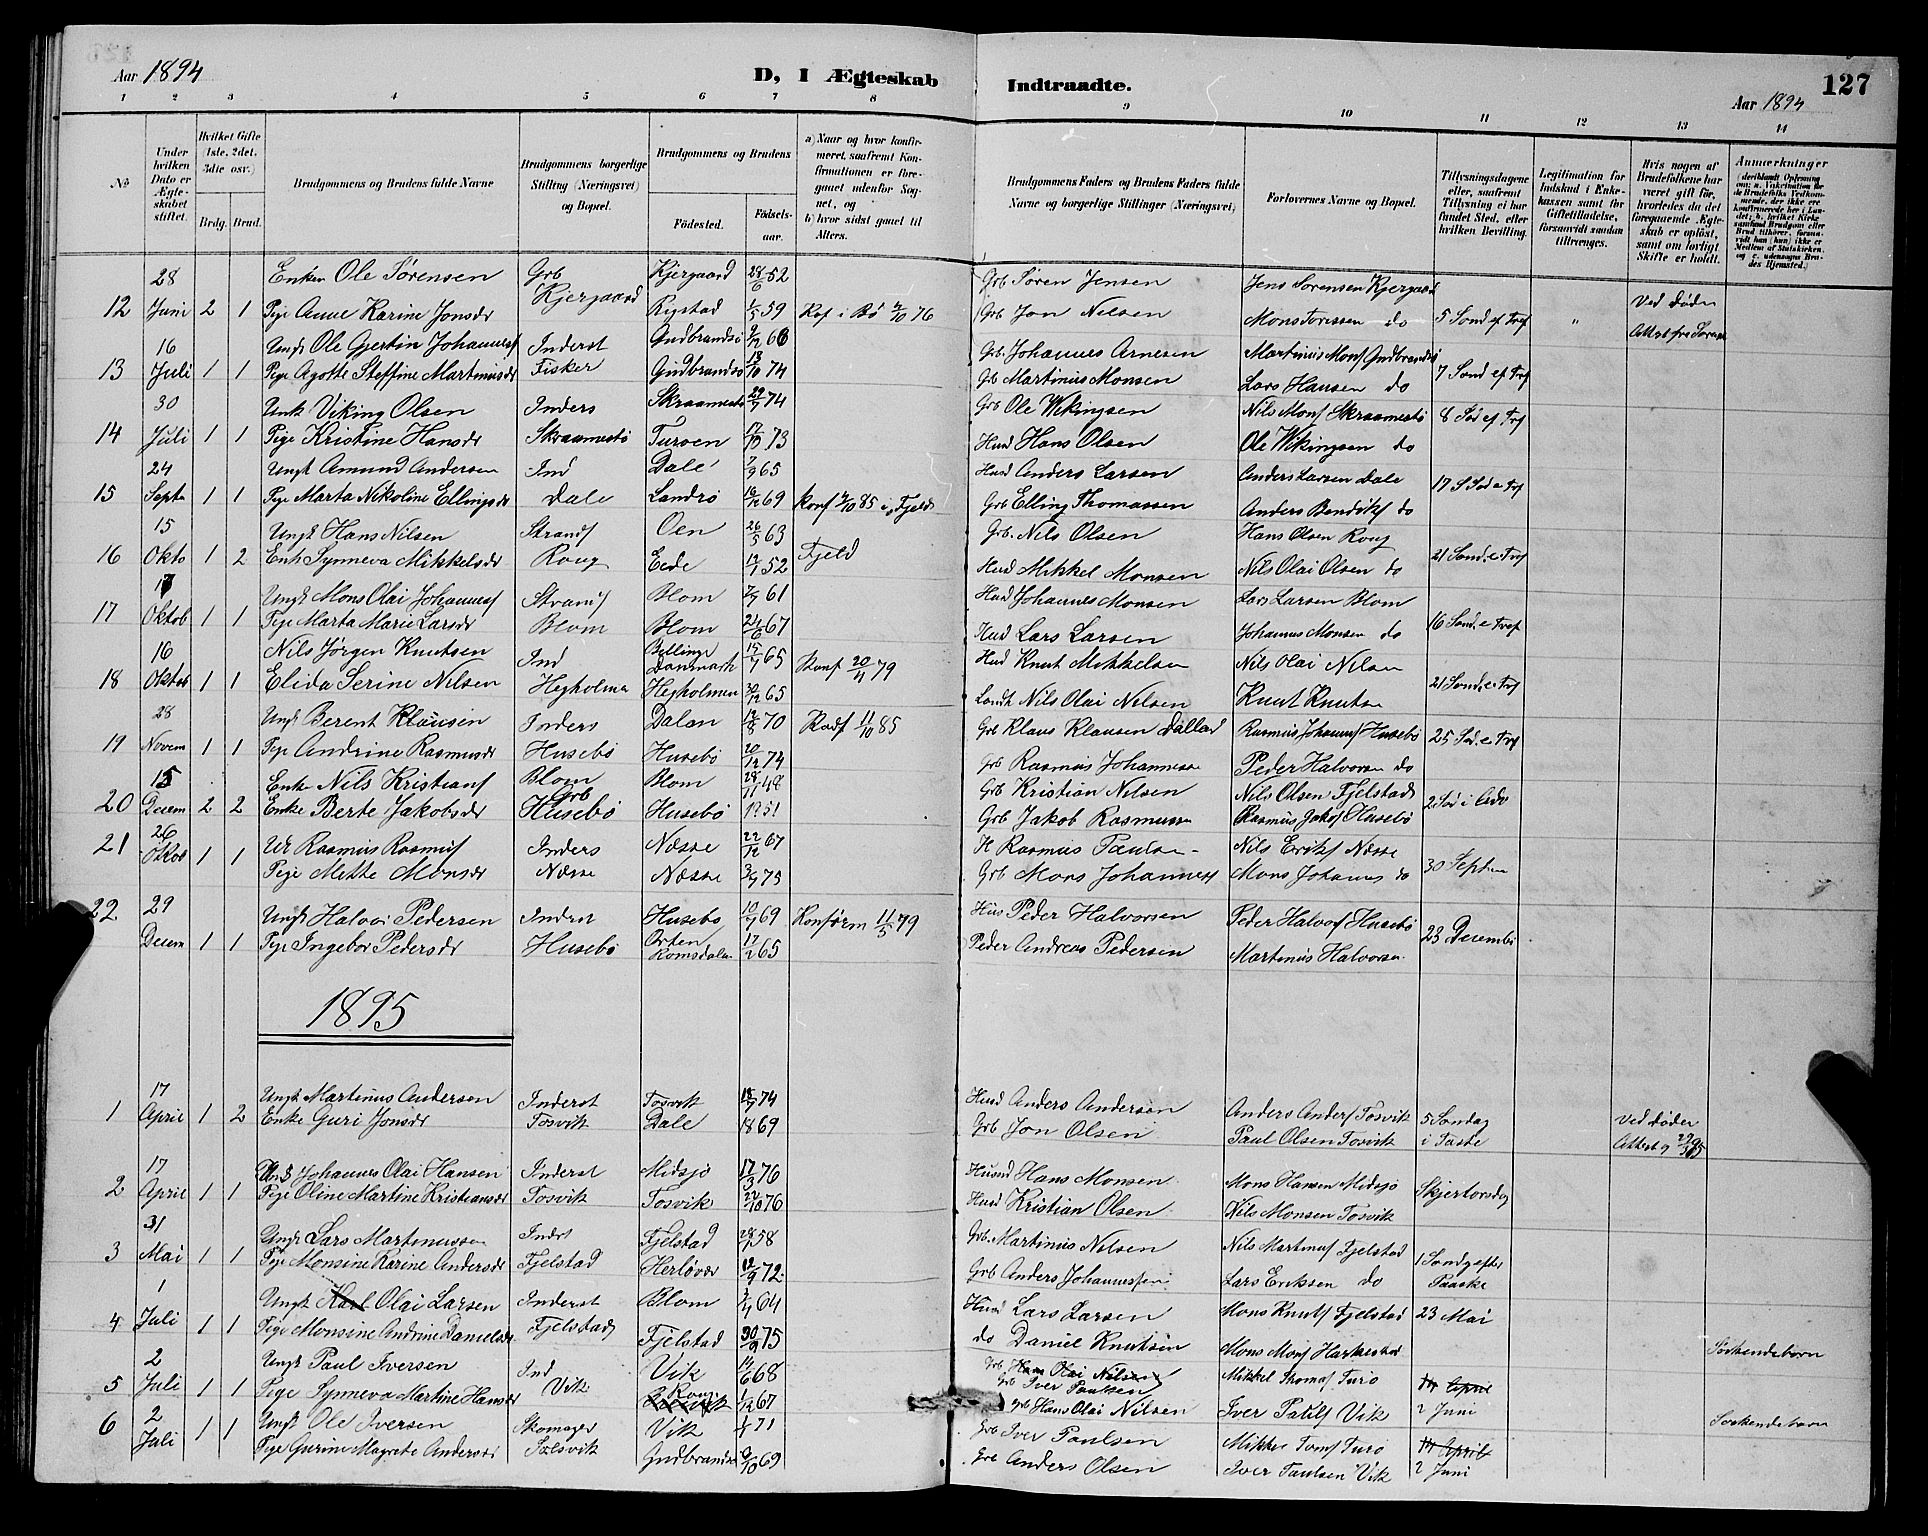 Aar 1894
D, I Ægteskab Indtraadte.
Aar 1894
127
1 2 3 4 5 6 7 8 9 10 11 12 13 14
No
Under hvilken Dato er Ægteskabet stiftet.
Hvilket Gifte (1ste, 2det, 3die osv.)
Brdg. Brud.
Brudgommens og Brudens fulde Navne
Brudgommens borgerlige Stilling (Næringsvei) og Bopæl.
Brudgommens og Brudens
Fødested. Fødselsaar.
a) Naar og hvor konfirmeret, saafremt Konfirmationen er foregaaet udenfor Sognet, og
b) hvor sidst gaaet til Alters.
Brudgommens Faders og Brudens Faders fulde Navne og borgerlige Stillinger (Næringsvei)
Forlovernes Navne og Bopæl.
Tillysningsdagene eller, saafremt Tillysning ei har fundet Sted, efter hvilken Bevilling.
Legitimation for Indskud i Enkekassen samt for Giftetilladelse, forsaavidt saadan tiltrænges.
Hvis nogen af Brudefolkene har været gift før, hvorledes da det foregaaende Ægteskab er opløst, samt om lovligt Skifte er holdt.
Anmærkninger
28 Enkem Ole Sørensen Grb Kjergaard 28/6 52 Grb Søren Jensen Jens Sørensen Kjergaard
12 Juni 2 1 Pige Anne Karine Jonsdr Kjergaard Rystad 1/5 59 Kof i Bø 76 Grb Jon Nilsen Mons Toressen do 5 Sond ef Tref " Ved Døden
16 Ungk Ole Gjertin Johannesf Inderst Gudbrandsø 66 Grb. Johannes Arnesen Martinus Monsf Gudbrandsø
13 Juli 1 1 Pige Agotte Steffine Martinusdr Fisker Gudbrandsø 13/10 74 Grb Martinus Monsen Lars Hansen do 7 Sond ef Tref
30 Unk Viking Olsen Inders Skraamestø 74 Grb Ole Wikingsen Nils Monsf Skraamestø 8 Sød ef Tref
14 Juli 1 1 Pige Kristine Hansdr Skraamestø Turøen 73 Husd Hans Olsen Ole Wikingsen do
24 Ungk Amund Andersen Ind Dale 7/9 65 Husd Anders Larsen Anders Larsen Dale
15 Septr 1 1 Pige Marta Nikoline Ellingsdr Dale Landrø 69 Konf 85 i Fjeld Grb Elling Thomassen Anders Bendikf do 17 S Sød e Tref
15 Ungk Hans Nilsen Strands Oen 26/5 63 Grb. Nils Olsen Hans Olsen Rong
16 Okto 1 2 Enk Synneva Mikkelsdr Rong Eide 52 Fjeld Husd Mikkel Monsen Nils Olai Olsen do 21 Sond. e Tref
17 Ungk Mons Olai Johannesf Strands Blom 7/9 61 Husd Johannes Monsen Lars Larsen Blom
17 Oktob 1 1 Pige Marta Marie Larsdr Blom Blom 24/6 67 Husd Lars Larsen Johannes Monsen do 16 Sond. e Tref
16 Nils Jørgen Knutsen Ind Danmark 15/7 65 Konf 20/4 79 Husd Knut Mikkelsen Nils Olai Nilsen
18 Oktob 1 1 Elida Serine Nilsen Hegholmen Hegholmen 65 Landh Nils Olai Nilsen Knut Knutsen 21 Sond. e. Tref
28 Ungk Berent Klausen Inders Dalan 12/8 70 Konf 11/10 85 Grb Klaus Klausen Dallan Rasmus Johannesf Husebø 25 Sød. e. Tref
19 Novem 1 1 Pige Andrine Rasmusdr Husebø Husebø 20/12 74 Grb Rasmus Johannessen Peder Halvorsen do
15 Enke Nils Kristiansf Blom Grb Blom 28/11 48 Grb Kristian Nilsen Nils Olsen Fjelstad
20 Decem 2 2 Enke Berte Jakobsdr Husebø Husebø 51 Grb Jakob Rasmussen Rasmus Jakobf Husebø 2 Sød i Adv
26 Ur Rasmus Rasmusf Inders Næsse 22/12 67 H Rasmus Paulsen Nils Erikf Næsse
21 Oktob 1 1 Pige Mette Monsdr Næsse Næsse 75 Grb Mons Johannesf Mons Johannes do 30 Septem
22 29 Ungk Halvor Pedersen Inderst Husebø 10/7 69 Konform 11/5 79 Hus Peder Halvorsen Peder Halvorf Husebø
Decem 1 1 Pige Ingebor Pedersdr Husebø Orten Romsdalen 17/2 65 Peder Andreas Pedersen Martinus Halvorsen 23 Decembr
1895
17 Ungk Martinus Andersen Inderst Tosvik 74 Husd Anders Andersen Anders Andersf Tosvik 5 Søndag Ved Døden
1 April 1 2 Enke Guri Jonsdr Tosvik Dale 1869 Grb Jon Olsen Paul Olsen Tosvik i Faste
17 Ungk Johannes Olai Hansen Inderst Midsjø 17/3 76 Husmd Hans Monsen Mons Hansen Midsjø Skjertorsdag
2 April 1 1 Pige Oline Martine Kristiansdr Tosvik Tosvik 22/10 76 Husd Kristian Olsen Nils Monsen Tosvik
31 Ungk Lars Martinussen Inderst Fjelstad 58 Grb. Martinus Nilsen Nils Martinusf Fjelstad 1 Søndg efter
3 Mai 1 1 Pige Monsine Karine Andersdr Fjelstad Herløvær 12/9 72 Grb Anders Johannessen Lars Eriksen do Paaske
1 Ungk Karl Olai Larsen Inderst Blom 64 Husd Lars Larsen Mons Knutf Fjelstad 23 Mai
4 Juli 1 1 Pige Monsine Andrine Danielsdr Fjelstad Fjelstad 30/9 75 do Daniel Knutsen Mons Monsf Harkestad Søskendebarn
2 Ungk Paul Iversen Ind Vik 14/6 68 Grb Hans Olai Nilsen Grb Iver Paulsen Mikkel Tomasf Turø 14 April
5 Juli 1 1 Pige Synneva Martine Hansdr Vik Rong 1/12 67 Grb Hans Olai Nilsen Iver Paulsf Vik 2 Juni
2 Ungk Ole Iversen Skomager Vik 71 Grb Iver Paulsen Mikkel Tomsf Turø 14 April Søskendebarn
6 Juli 1 1 Pige Gurine Magrete Andersdr Gudbrandsø 69 Grb Anders Olsen Iver Paulsen Vik 2 Juni